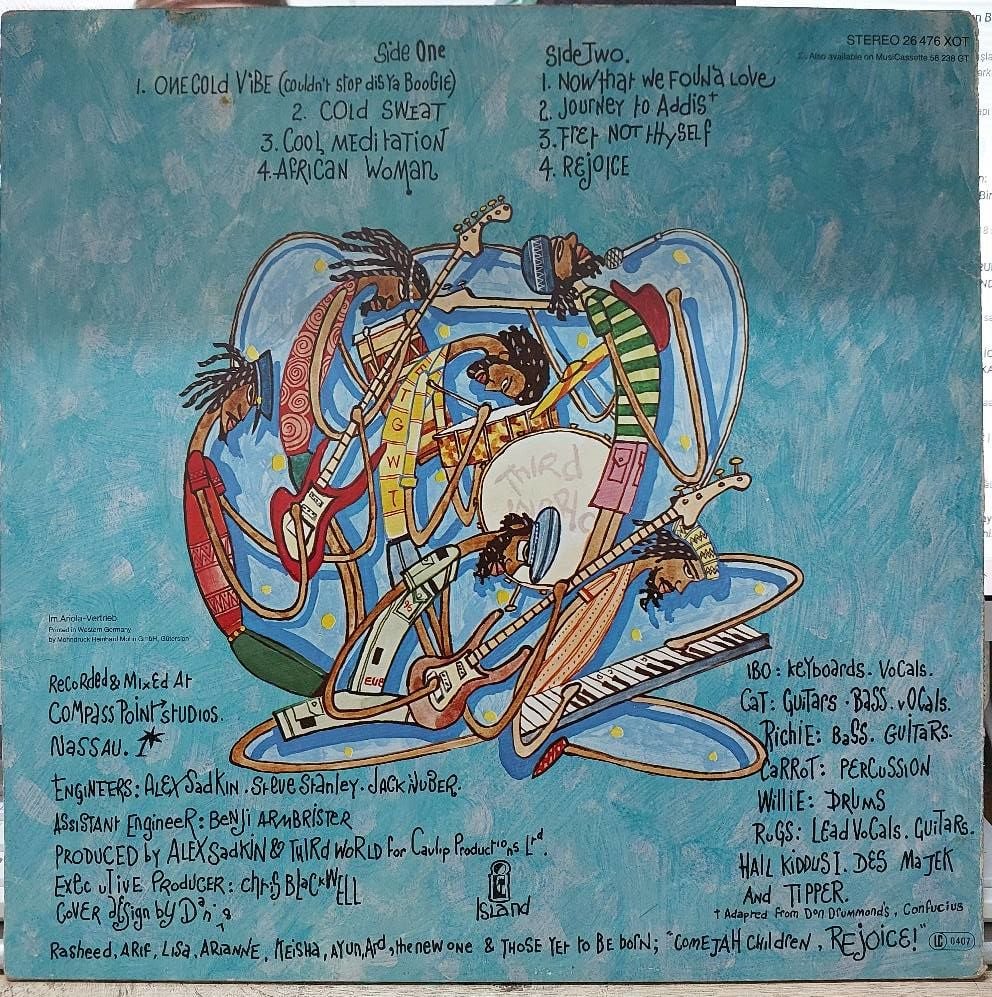 STEREO 26 476 XOT
Also available on MusiCassette 56 238 GT
Side One
1. ONE COLD VIBE (Couldn't stop dis Ya BooGIE)
2. COLD SWEAT
3. COOL MEDITATION
4. AFRICAN WOMAN
Side Two.
1. Now that we Found Love
2. Journey to Addis†
3. Fret NOT tHySELF
4. REJOICE
G
W
T
Third
World
96
EUB
Im Ariola-Vertrieb
Printed in Western Germany
by Mohndruck Reinhard Mohn GmbH, Gütersloh
Recorded & Mixed At
COMPASS POINT STUDIOS.
NASSAU.
ENGINEERS: ALEX SadKIN. Steve Stanley. JACK NUBER.
ASSISTANT EngineeR: BeNJi ARMBRISTER
PRODUCED by ALEX SadKIN & THIRd WORLD for Caulip Productions Ltd.
Executive PRODUCER: Chris BLACKWELL
COVER design by Dani
Island
IBO: KEYboards. Vocals.
CAT: Guitars. BASS. vOCals.
RichIE: BaSS. GUITARS.
CARROT: PERCUSSION
Willie: DRUMS
RUGS: LEAD VoCALS. GuiTARS.
HAIL KIDDUS I. DES MaJEK
And TIPPER.
† Adapted From Don Drummond's, Confucius
Rasheed, ARIF, LISA, ARIANNE, KEISHA, AYUN, Ard, the new one & THOSE YET to BE boRN; "COME JAH Children, REJOICE!"
LC 0407